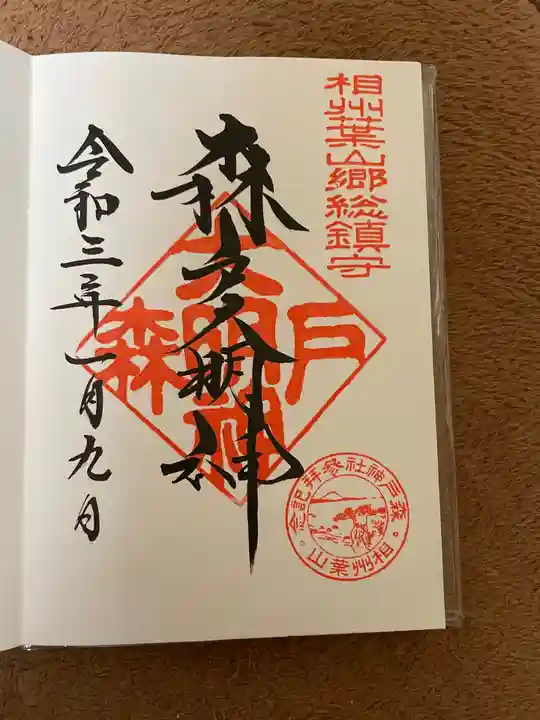 相州葉山郷総鎮守
森戸大明神
森戸大明神
令和三年一月九日
森戸神社参拝記念。
相州葉山。